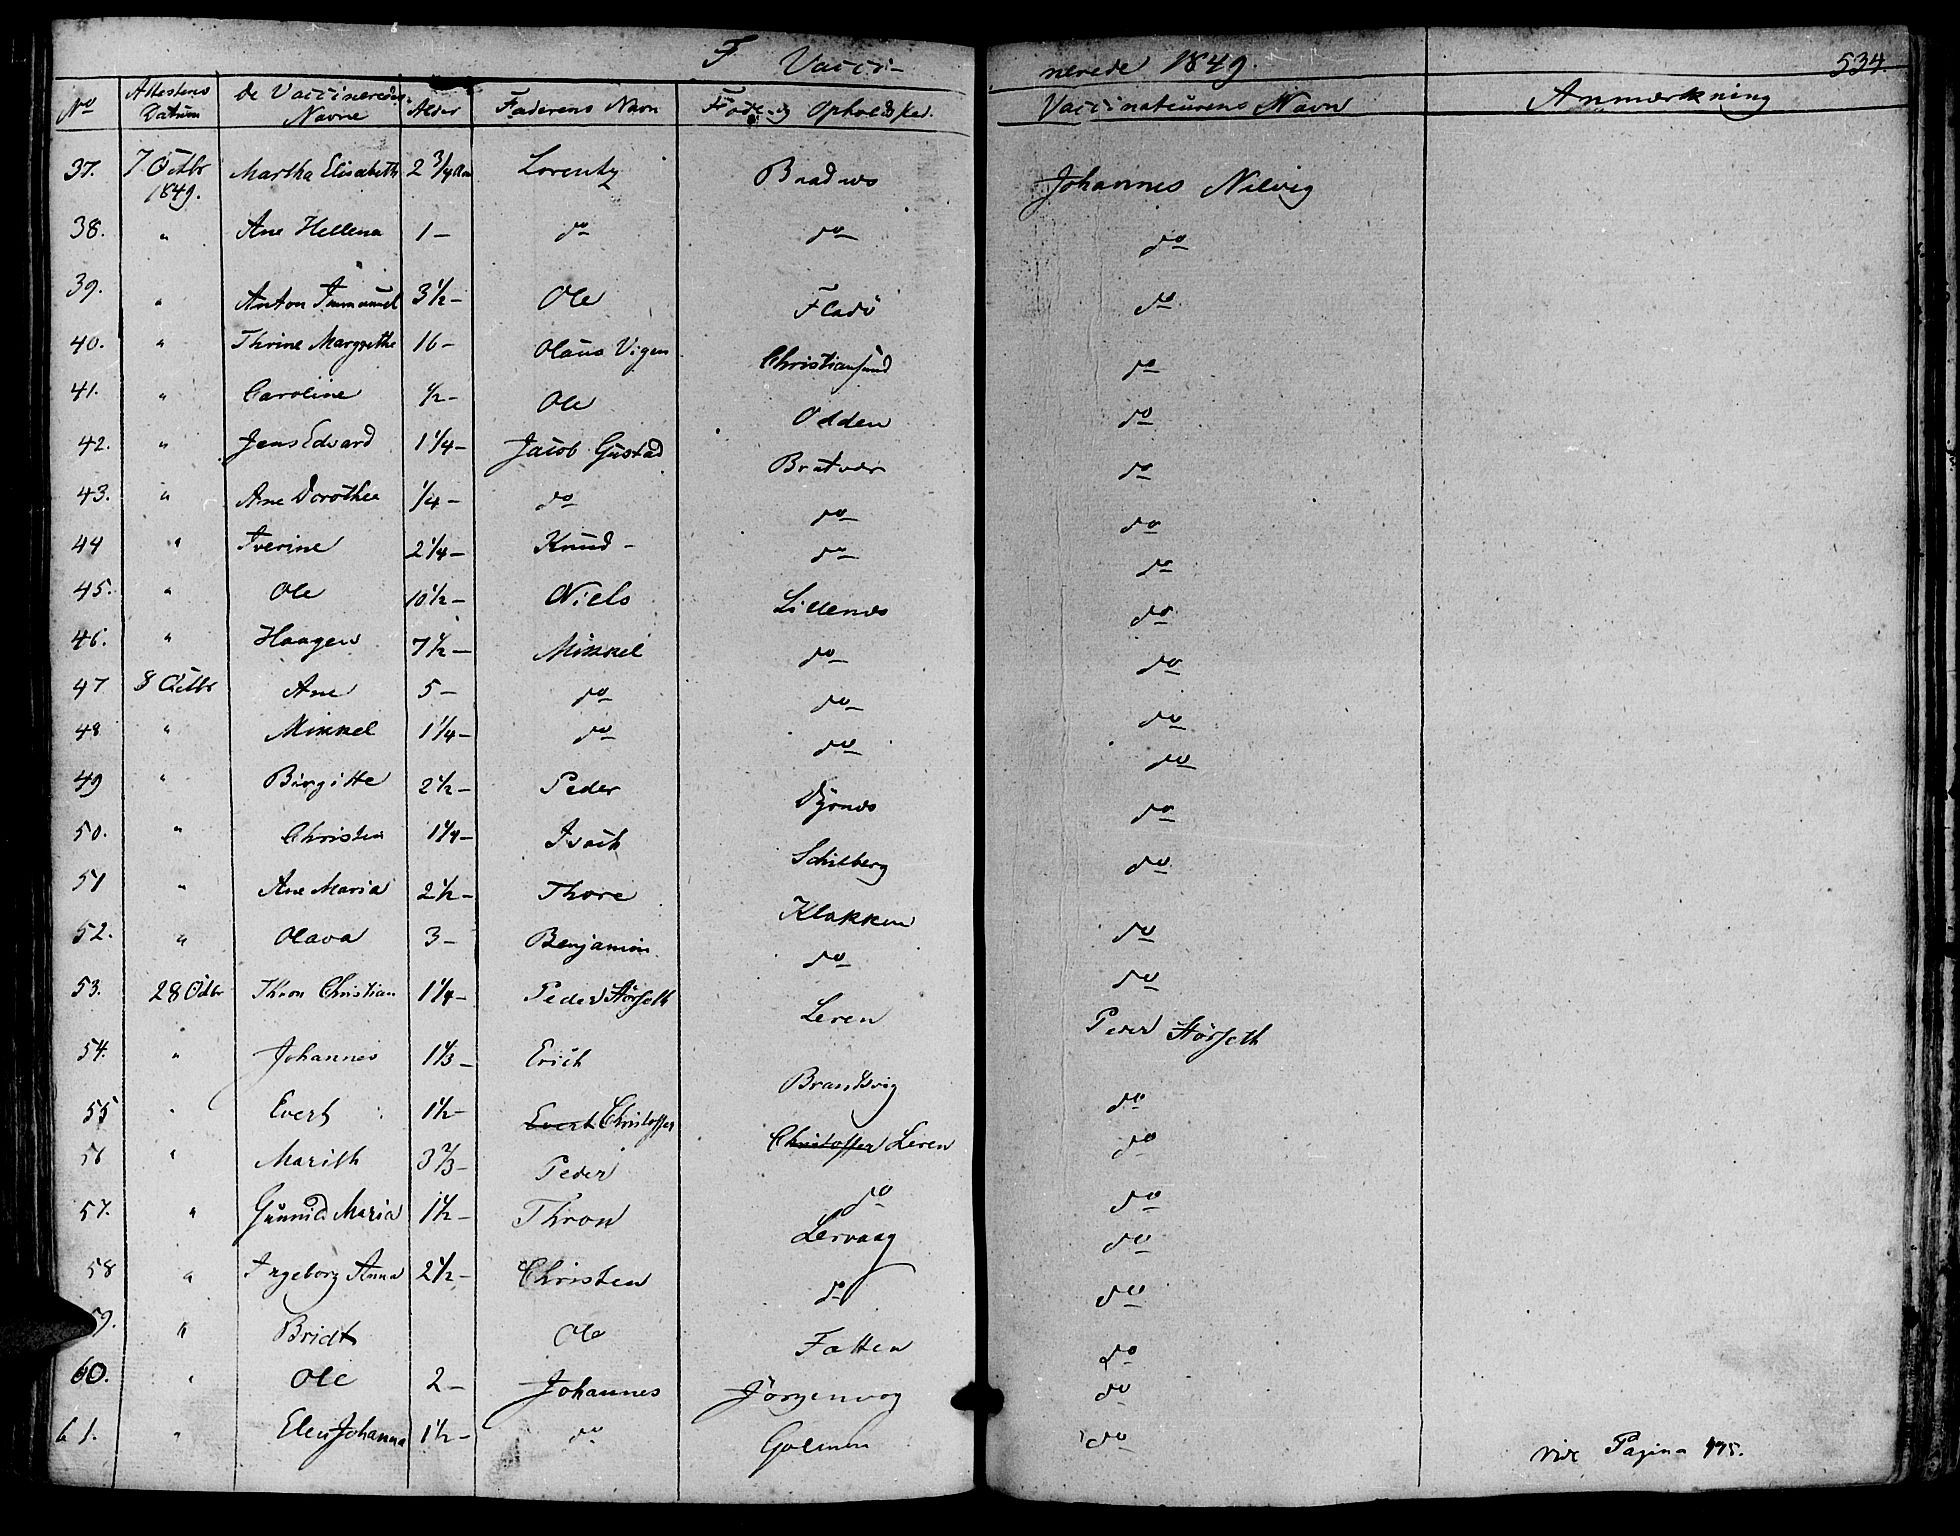 F Vacci- nerede 1849. 534.
No Attestens Datum De Vaccineredes Navne Alder Faderens Navn Føde og Opholdsted. Vaccinateurens Navn Anmærkning
37. 7 Octbr 1849. Martha Elisabeth 2 3/4 Aar Lorentz Baadnes Johannes Nelvig
38. " Ane Hellena 1 – do do do
39. " Anton Immanuel 3 1/2 – Ole Fladö do
40. " Thrine Margrethe 16 – Olaus Vigen Christiansund do
41. " Caroline 1/2 – Ole Odden do
42. " Jens Edvard 1 1/4 – Jacob Gustad Bratvær do
43. " Ane Dorothea 1/4 – do do do
44 " Iverine 2 1/4 – Knud – do do
45. " Ole 10 1/2 – Niels Lillenes do
46. " Haagen 7 1/2 – Mikkel do do
47 8 Octbr Ane 5 – do do do
48 " Mikkel 1 1/4 – do do do
49 " Birgitte 2 1/2 – Peder Dyrnes do
50. " Christen 1 1/4 – Isach Schilberg do
51 " Ane Maria 2 1/2 – Thore Klakken do
52. " Olava 3 – Benjamin do do
53. 28 Octbr Thron Christian 1 1/4 – Peder Störseth Leren Peder Störseth
54. " Johannes 1 1/3 – Erich Brandsvig do
55 " Evert 1 1/2 – Evert Christoffer Christoffer Leren do
56 " Marith 3 2/3 – Peder do do
57. " Gunnild Maria 1 1/2 – Thron Lervaag do
58 " Ingeborg Anna 2 1/2 – Christen do do
59. " Bridt Ole Fatten do
60. " Ole 2 – Johannes Jörgenvog do
61. " Elen Johanna 1 1/2 – do Golmen do
vide Pagina 475.